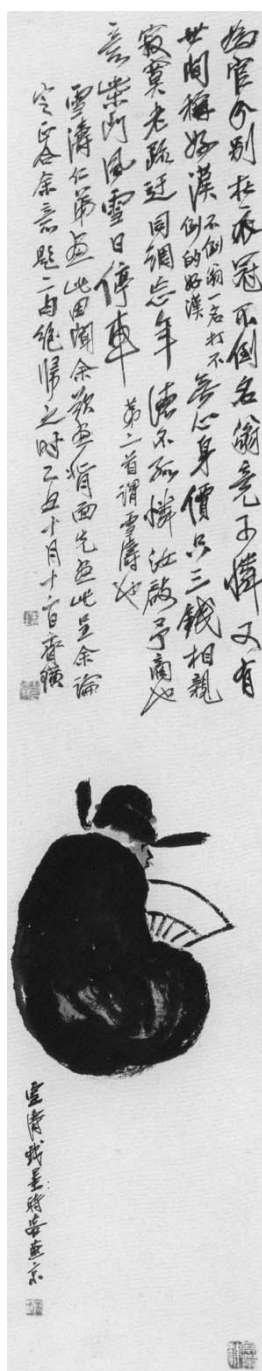 為官分別在衣冠不倒名翁竟可憐又有
世間稱好漢不倒翁一名打不倒的好漢無心身價只三錢相親
寂寞老疏迂同調忘年德不孤憐汝啟予商也
意柴門風雪日停車 第二首謂雪濤也
雪濤仁弟畫此因聞余欲畫背面先畫此呈余論
定正合余意題二句絕歸之時乙丑十月十日齊璜
雪濤戲墨時客燕京